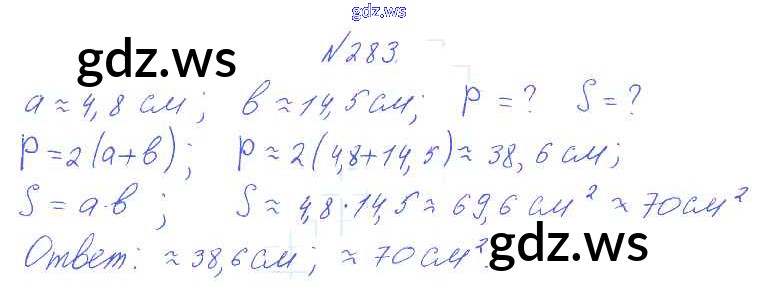 gdz.ws
gdz.ws
№283.
a ≈ 4,8 см; в ≈ 14,5 см; P = ? S = ?
P = 2(a+в); P ≈ 2(4,8+14,5) ≈ 38,6 см;
S = a·в; S ≈ 4,8·14,5 ≈ 69,6 см² ≈ 70 см²
gdz.ws
Ответ: ≈ 38,6 см; ≈ 70 см².